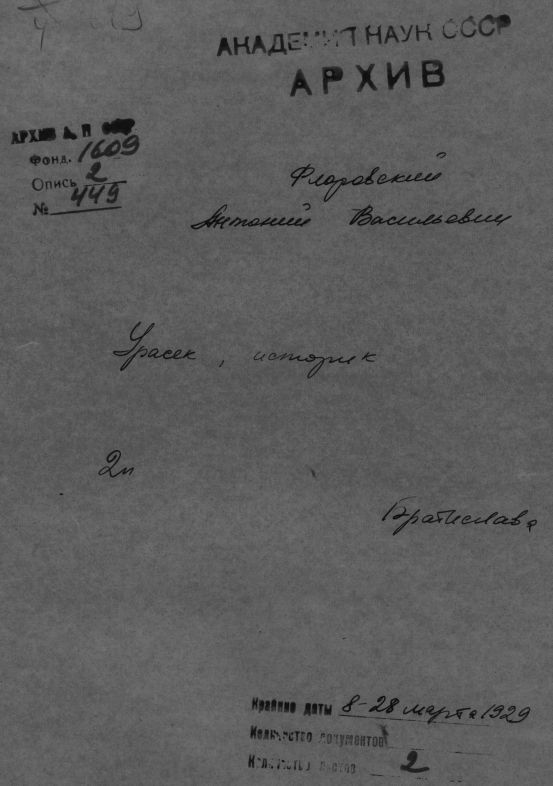 АКАДЕМИЯ НАУК СССР
АРХИВ
АРХИВ А. Н СССР
Фонд. 1609
Опись 2
№ 449
Флоровский
Антоний Васильевич
Урасек, историк
2п
Братислава
Крайние даты 8-28 марта 1929
Количество документов
Количество листов 2